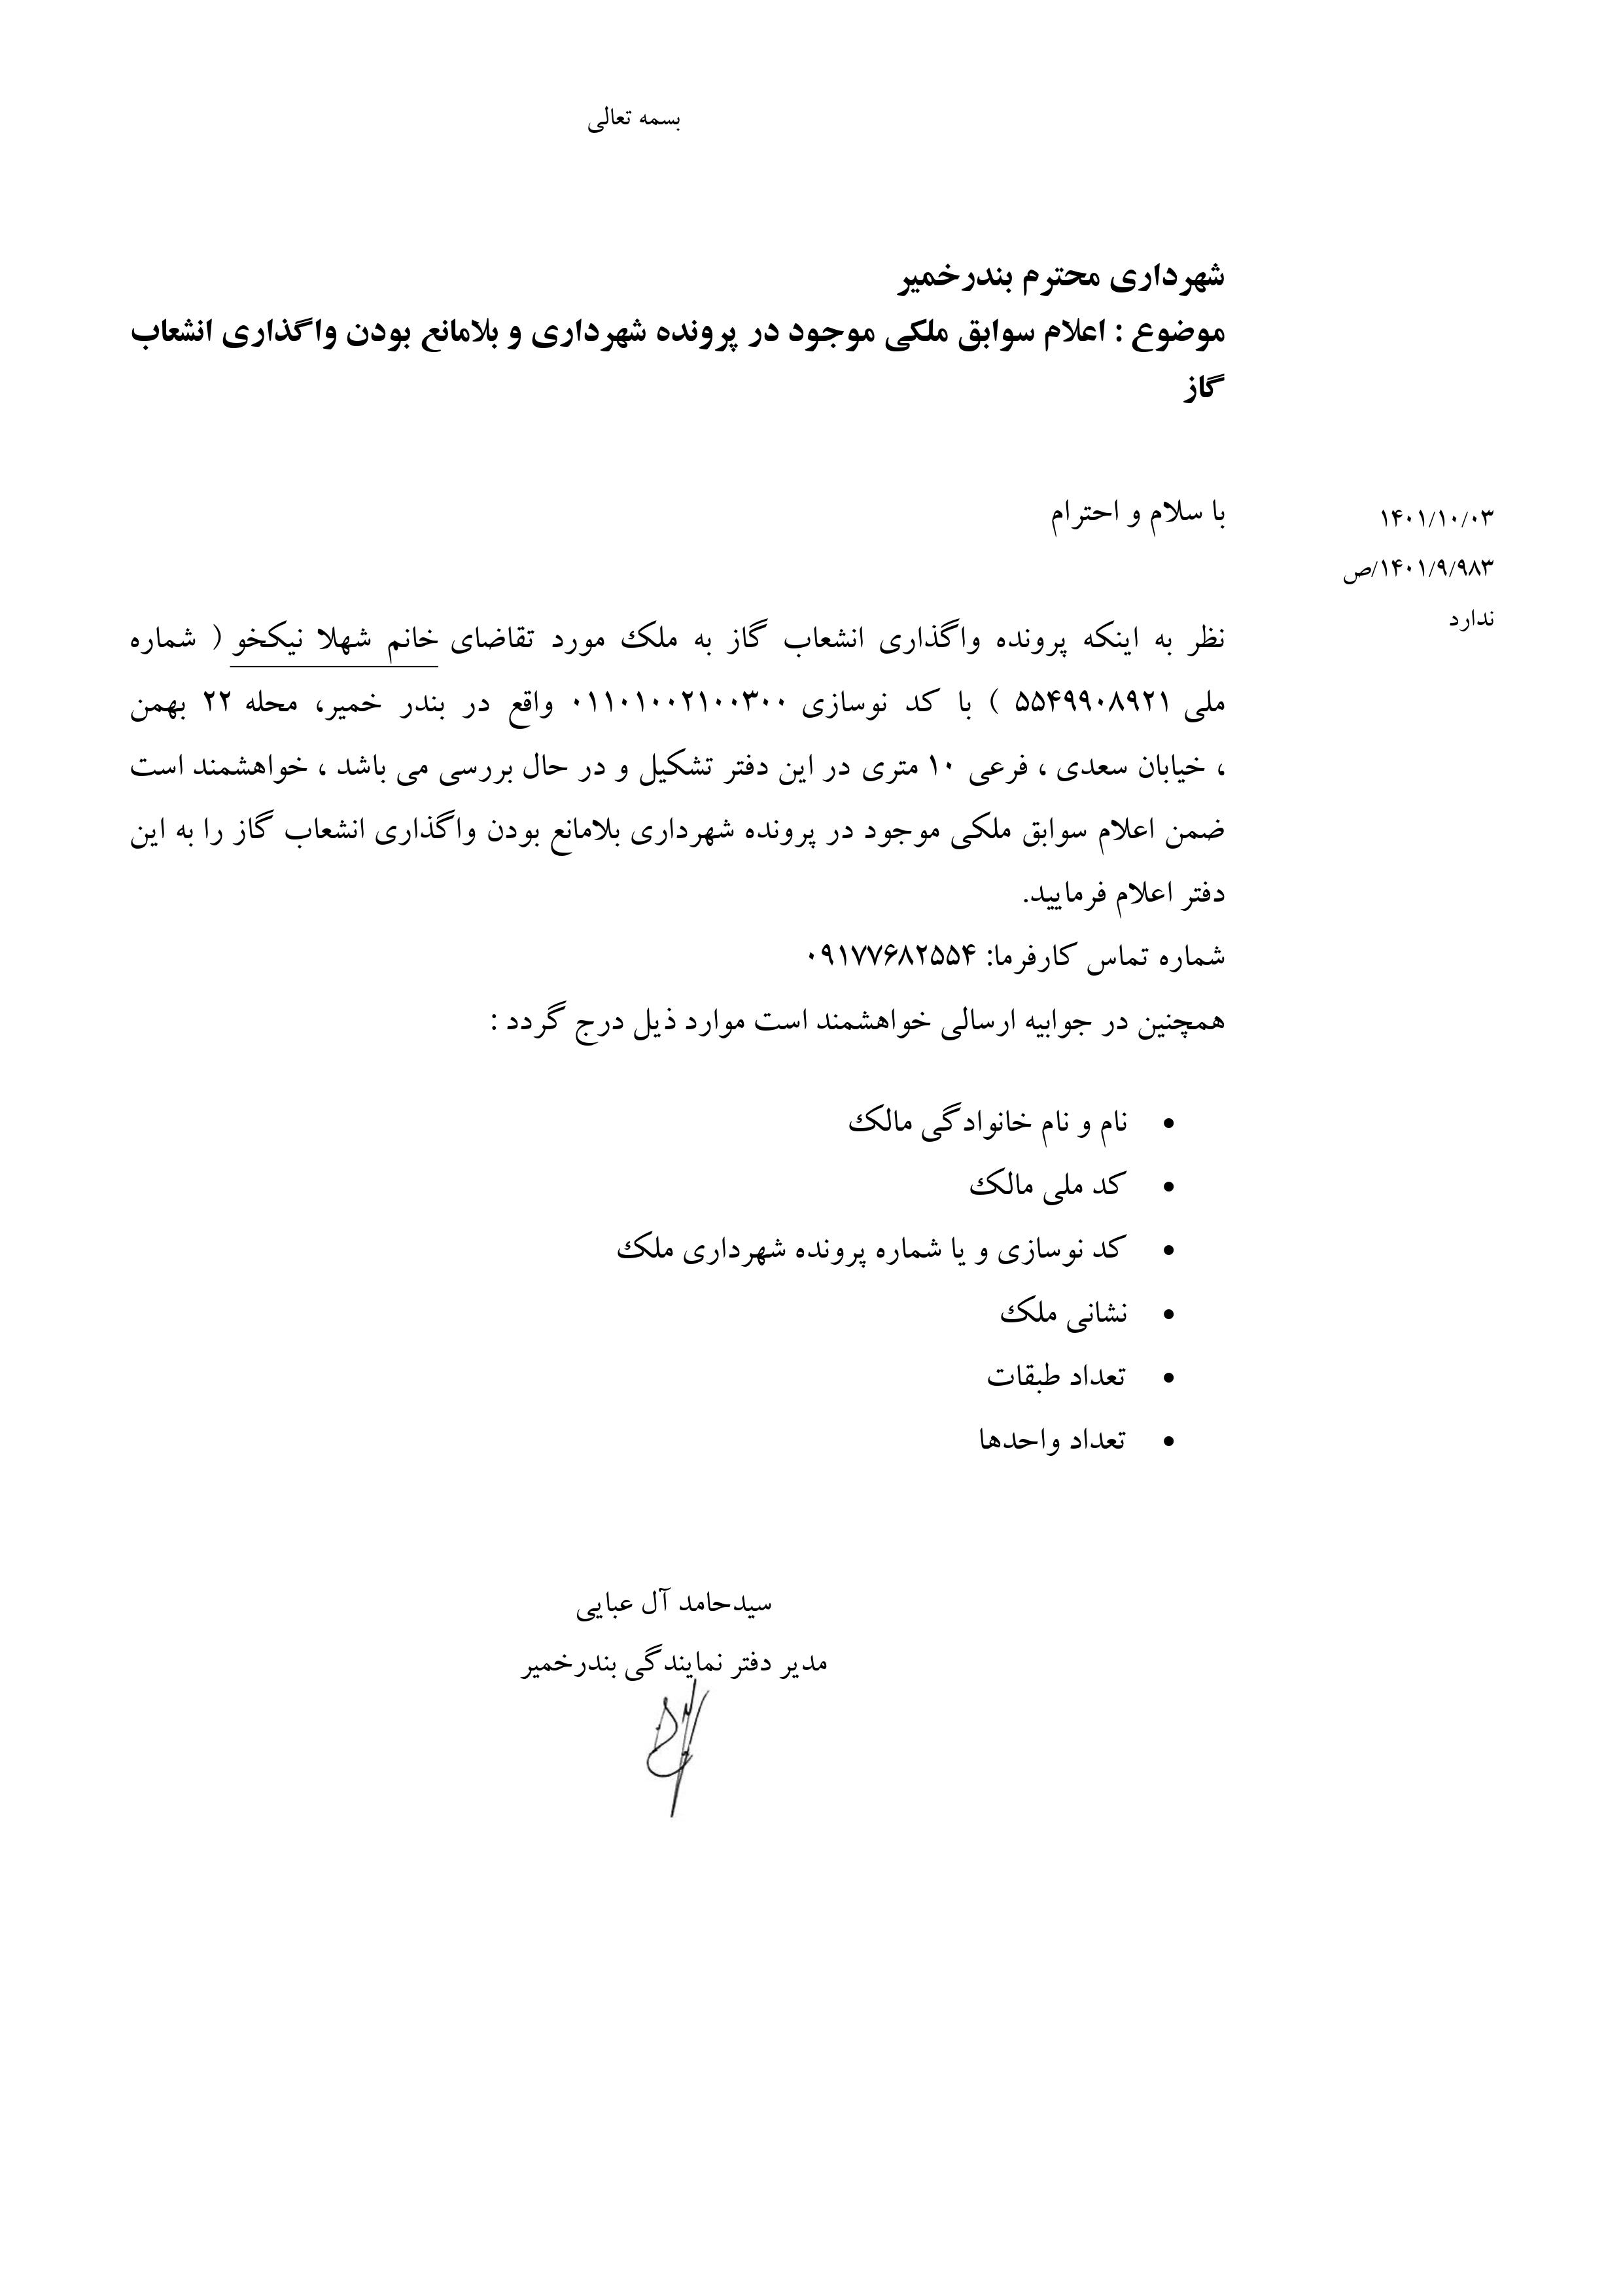 بسمه تعالی
شهرداری محترم بندرخمیر
موضوع : اعلام سوابق ملکی موجود در پرونده شهرداری و بلامانع بودن واگذاری انشعاب
گاز
۱۴۰۱/۱۰/۰۳
۱۴۰۱/۹/۹۸۳/ص
ندارد
با سلام و احترام
نظر به اینکه پرونده واگذاری انشعاب گاز به ملک مورد تقاضای خانم شهلا نیکخو ( شماره
ملی ۵۵۴۹۹۰۸۹۲۱ ) با کد نوسازی ۰۱۱۰۱۰۰۲۱۰۰۳۰۰ واقع در بندر خمیر، محله ۲۲ بهمن
، خیابان سعدی ، فرعی ۱۰ متری در این دفتر تشکیل و در حال بررسی می باشد ، خواهشمند است
ضمن اعلام سوابق ملکی موجود در پرونده شهرداری بلامانع بودن واگذاری انشعاب گاز را به این
دفتر اعلام فرمایید.
شماره تماس کارفرما: ۰۹۱۷۷۶۸۲۵۵۴
همچنین در جوابیه ارسالی خواهشمند است موارد ذیل درج گردد :
• نام و نام خانوادگی مالک
• کد ملی مالک
• کد نوسازی و یا شماره پرونده شهرداری ملک
• نشانی ملک
• تعداد طبقات
• تعداد واحدها
سیدحامد آل عبایی
مدیر دفتر نمایندگی بندرخمیر